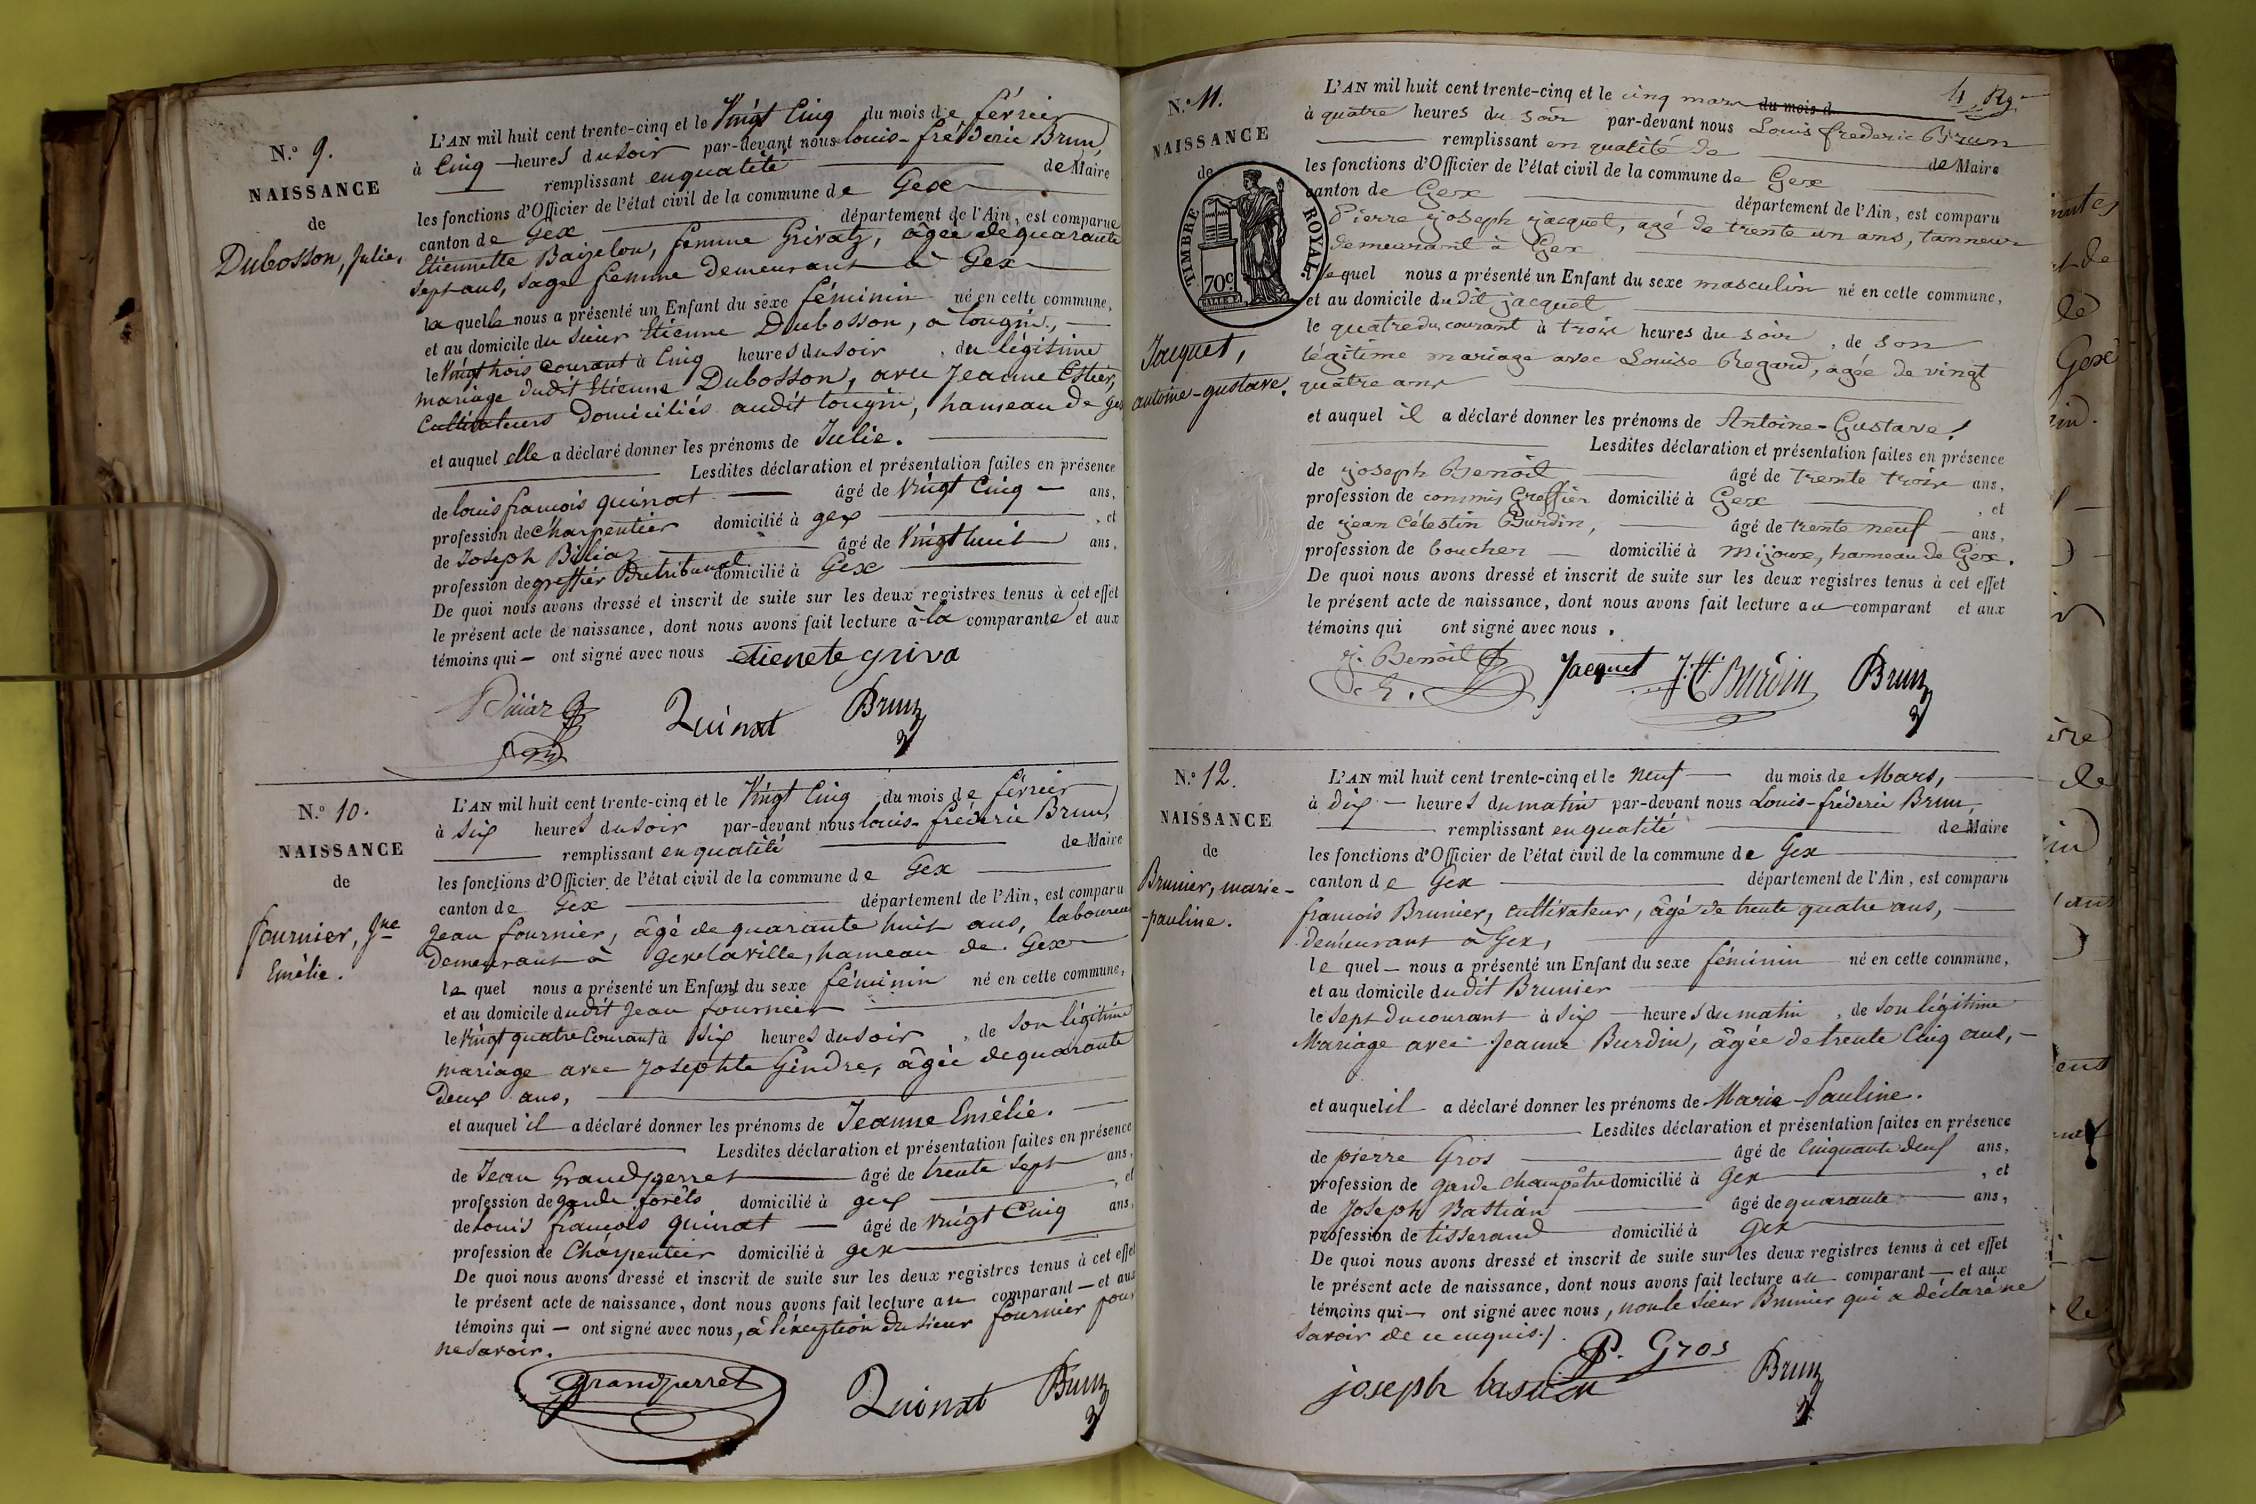 N.º 9.
NAISSANCE
de
Dubosson, Julie.
L'AN mil huit cent trente-cinq et le Vingt Cinq du mois de février
à Cinq heures du soir par-devant nous louis-fréderic Brun,
remplissant en qualité de Maire
les fonctions d'Officier de l'état civil de la commune de Gex
canton de Gex département de l'Ain, est comparue
Etiennette Baizelon, femme Grivatz, âgée de quarante
sept ans, sage femme demeurant à Gex
la quelle nous a présenté un Enfant du sexe féminin né en cette commune,
et au domicile du sieur Etienne Dubosson, à tougin,
le Vingt trois courant à Cinq heures du soir, du légitime
mariage dudit Etienne Dubosson, avec Jeanne Estier,
Cultivateurs Domiciliés audit tougin, hameau de gex
et auquel elle a déclaré donner les prénoms de Julie.
Lesdites déclaration et présentation faites en présence
de louis françois quinat âgé de Vingt Cinq ans,
profession de Charpentier domicilié à gex, et
de Joseph Billiaz âgé de Vingt huit ans,
profession de greffier Du tribunal domicilié à Gex
De quoi nous avons dressé et inscrit de suite sur les deux registres tenus à cet effet
le présent acte de naissance, dont nous avons fait lecture à la comparante et aux
témoins qui ont signé avec nous etienete griva
Quinat Brun
N.º 10.
NAISSANCE
de
fournier, Jne
Emélie.
L'AN mil huit cent trente-cinq et le Vingt Cinq du mois de février
à Six heures du soir par-devant nous louis-fréderic Brun,
remplissant en qualité de Maire
les fonctions d'Officier de l'état civil de la commune de Gex
canton de Gex département de l'Ain, est comparu
Jean fournier, âgé de quarante huit ans, laboureur
Demeurant à Gex la ville, hameau de Gex
le quel nous a présenté un Enfant du sexe féminin né en cette commune,
et au domicile dudit Jean fournier
le Vingt quatre Courant à Six heures du soir, de son légitime
mariage avec Josephte Gindre, âgée de quarante
Deux ans,
et auquel il a déclaré donner les prénoms de Jeanne Emélie.
Lesdites déclaration et présentation faites en présence
de Jean Grandperret âgé de trente sept ans,
profession de garde forêts domicilié à gex, et
de louis françois quinat âgé de Vingt Cinq ans,
profession de Charpentier domicilié à gex
De quoi nous avons dressé et inscrit de suite sur les deux registres tenus à cet effet
le présent acte de naissance, dont nous avons fait lecture au comparant et aux
témoins qui ont signé avec nous, à l'exception du sieur fournier pour
ne savoir.
Grandperret Quinat Brun
4
N.º 11.
NAISSANCE
de
TIMBRE ROYAL.
70c
Jacquet,
antoine-gustave.
L'AN mil huit cent trente-cinq et le cinq mars du mois d
à quatre heures du soir par-devant nous Louis frederic Brun
remplissant en qualité de de Maire
les fonctions d'Officier de l'état civil de la commune de Gex
canton de Gex département de l'Ain, est comparu
Pierre joseph jacquet, agé de trente un ans, tanneur
demeurant à Gex
lequel nous a présenté un Enfant du sexe masculin né en cette commune,
et au domicile dudit jacquet
le quatre du courant à trois heures du soir, de son
légitime mariage avec Louise Regard, agée de vingt
quatre ans
et auquel il a déclaré donner les prénoms de Antoine-Gustave.
Lesdites déclaration et présentation faites en présence
de joseph Benoit âgé de trente trois ans,
profession de commis Greffier domicilié à Gex, et
de jean Célestin Burdin, âgé de trente neuf ans,
profession de boucher domicilié à mijoux, hameau de Gex.
De quoi nous avons dressé et inscrit de suite sur les deux registres tenus à cet effet
le présent acte de naissance, dont nous avons fait lecture au comparant et aux
témoins qui ont signé avec nous.
j. Benoit Jacquet Burdin Brun
N.º 12.
NAISSANCE
de
Brunier, marie-
-pauline.
L'AN mil huit cent trente-cinq et le neuf du mois de Mars,
à dix heures du matin par-devant nous Louis-fréderic Brun,
remplissant en qualité de Maire
les fonctions d'Officier de l'état civil de la commune de Gex
canton de Gex département de l'Ain, est comparu
françois Brunier, Cultivateur, âgé de trente quatre ans,
demeurant à Gex,
le quel nous a présenté un Enfant du sexe féminin né en cette commune,
et au domicile dudit Brunier
le Sept du courant à Six heures du matin, de son légitime
Mariage avec Jeanne Burdin, âgée de trente Cinq ans,
et auquel il a déclaré donner les prénoms de Marie-Pauline.
Lesdites déclaration et présentation faites en présence
de pierre Gros âgé de Cinquante deux ans,
profession de garde champêtre domicilié à Gex, et
de Joseph Bastian âgé de quarante ans,
profession de tisserand domicilié à Gex
De quoi nous avons dressé et inscrit de suite sur les deux registres tenus à cet effet
le présent acte de naissance, dont nous avons fait lecture au comparant et aux
témoins qui ont signé avec nous, non le sieur Brunier qui a déclaré ne
savoir de ce enquis.
P. Gros
joseph bastian Brun